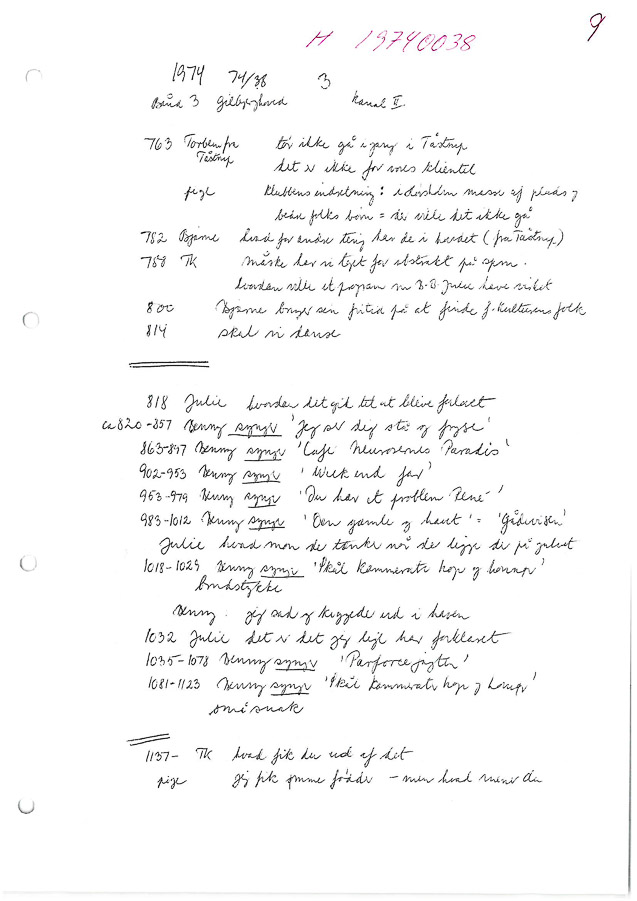 9
H 19740038
1974 74/38 3
Bånd 3 Gilbjerghoved Kanal II.
763 Torben fra Tåstrup tør ikke gå igang i Tåstrup
det er ikke for vores klientel
pige Klubbens indretning: masse af plads og
folks børn = der ville det ikke gå
782 Bjarne hvad for andre ting har de i hovedet (fra Tåstrup)
788 TK måske har vi taget for abstrakt på spm.
hvordan ville et program m B.B. Julie have virket
800 Bjarne bruger sin fritid på at finde f. Kulturens folk
814 skal vi danse
818 Julie hvordan det gik til at blive forlovet
ca 820-857 Benny synger 'Jeg ser dig stå og fryse'
863-897 Benny synger 'Café Neurosernes Paradis'
902-953 Benny synger 'Weekend far'
953-979 Benny synger 'Du har et problem René'
983-1012 Benny synger 'Den gamle og havet' = 'Gådevisen'
Julie hvad mon de tænker når de ligger der på gulvet
1018-1029 Benny synger 'Skål kammerater hop og hurra'
brudstykke
Benny. jeg sad og kiggede ud i haven
1032 Julie det er det jeg lige har forklaret
1035-1078 Benny synger 'Parforcejagten'
1081-1123 Benny synger 'Skål kammerater hop og hurra'
småsnak
1137- TK hvad fik du ud af det
pige jeg fik ømme fødder - men hvad mener du